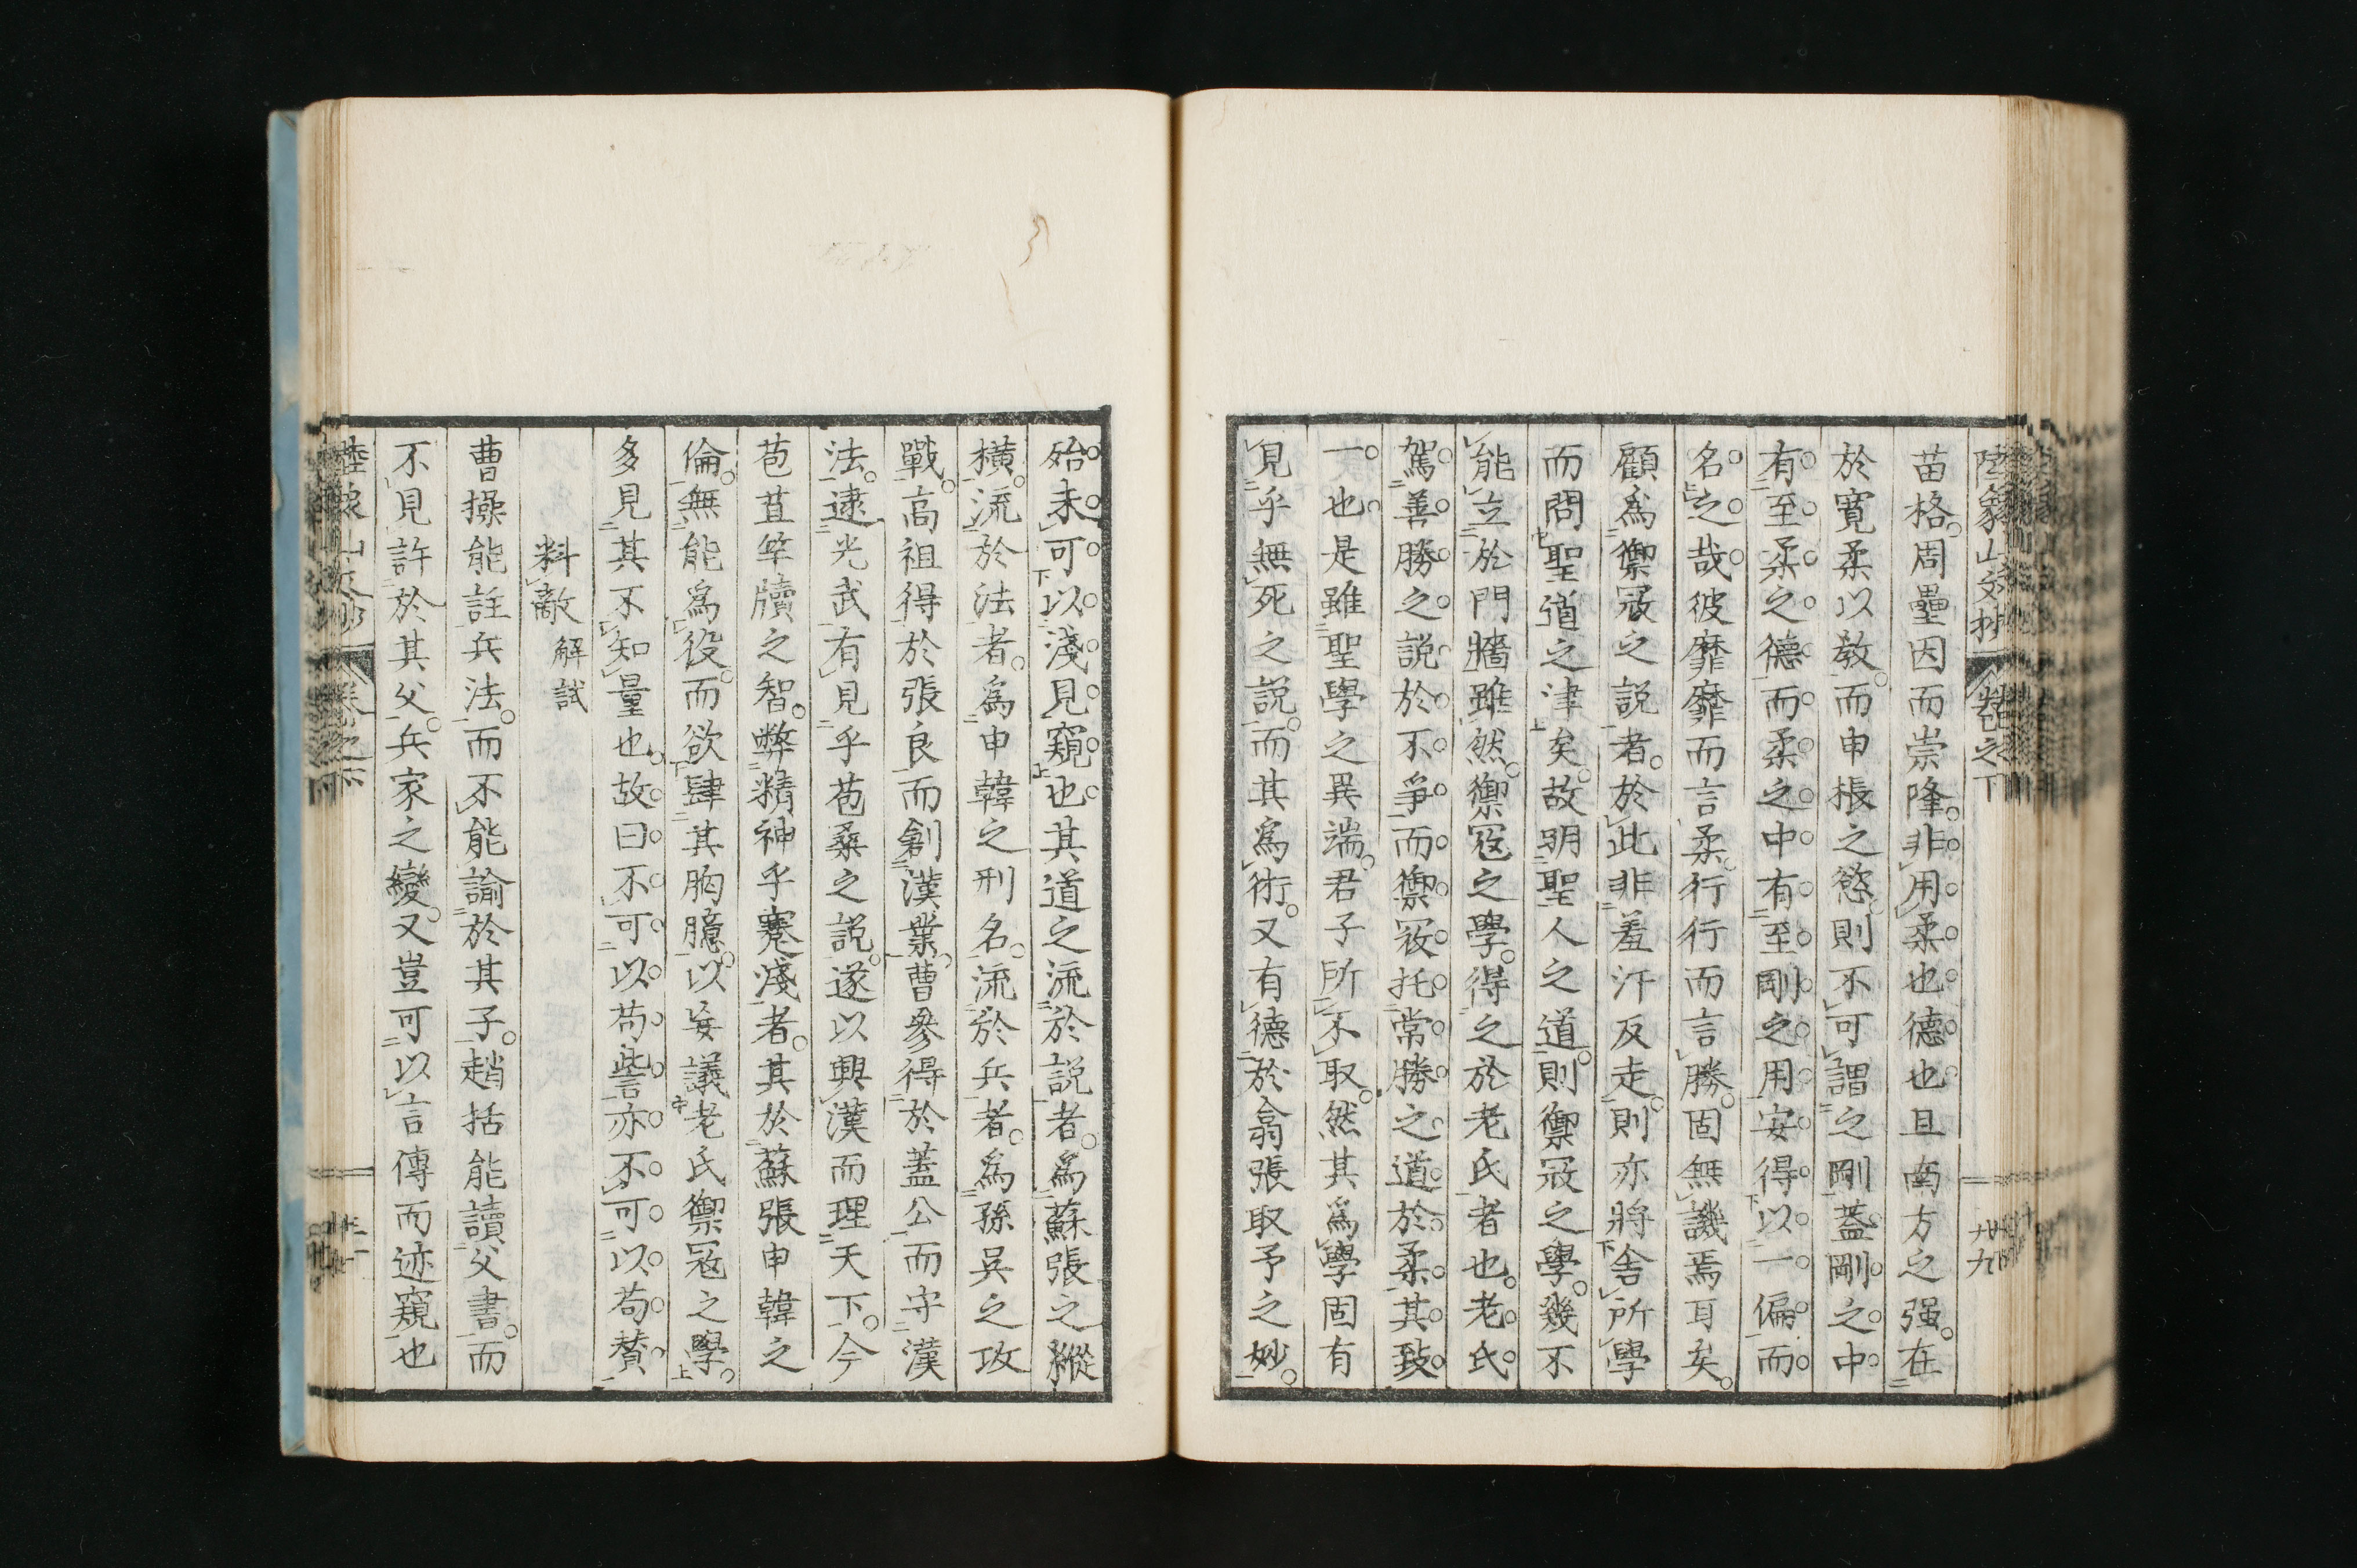 陸象山文抄 卷之下 廿九
苗格。周壘因而崇隆。非用柔也。德也。且南方之强。在
於寛柔以敎。而申棖之慾。則不可謂之剛。蓋剛之中
有至柔之德。而柔之中有至剛之用。安得以一偏而
名之哉。彼靡靡而言柔。行行而言勝。固無譏焉耳矣。
顧爲禦寇之説者。於此非羞汗反走。則亦將舍所學
而問聖道之津矣。故明聖人之道。則禦寇之學。幾不
能立於門牆。雖然。禦寇之學。得之於老氏者也。老氏
駕善勝之説於不爭。而禦寇托常勝之道於柔。其致
一也。是雖聖學之異端。君子所不取。然其爲學固有
見乎無死之説。而其爲術。又有德於翕張取予之妙。
殆未可以淺見窺也。其道之流於説者。爲蘇張之縱
橫。流於法者。爲申韓之刑名。流於兵者。爲孫吳之攻
戰。高祖得於張良。而創漢業。曹參得於蓋公。而守漢
法。逮光武有見乎苞桑之説。遂以興漢而理天下。今
苞苴竿牘之智。弊精神乎蹇淺者。其於蘇張申韓之
倫。無能爲役。而欲肆其胸臆。以妄議老氏禦寇之學。
多見其不知量也。故曰不可以苟訾。亦不可以苟贊。
料敵 解試
曹操能註兵法。而不能諭於其子。趙括能讀父書。而
不見許於其父。兵家之變。又豈可以言傳而迹窺也